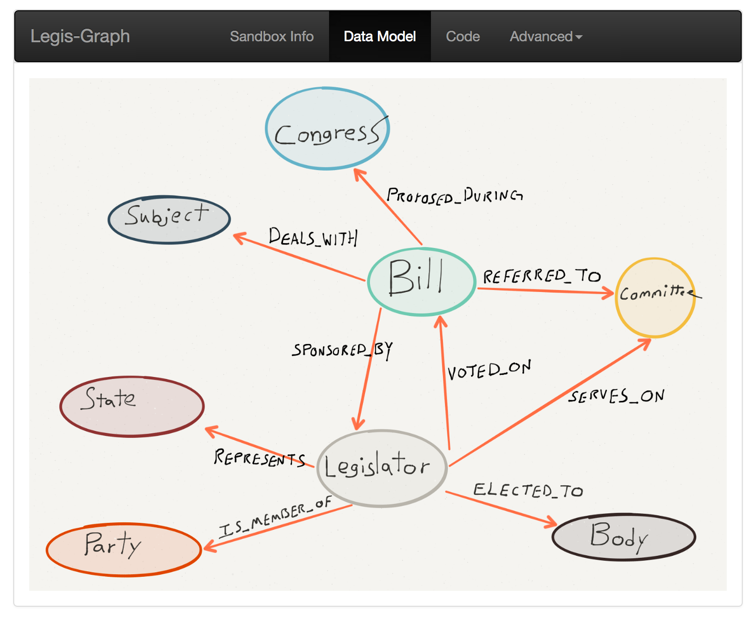 Legis-Graph Sandbox Info Data Model Code Advanced
Congress
PROPOSED_DURING
Subject
DEALS_WITH
Bill
REFERRED_TO
Committee
SPONSORED_BY
VOTED_ON
SERVES_ON
State
REPRESENTS
Legislator
ELECTED_TO
IS_MEMBER_OF
Party
Body